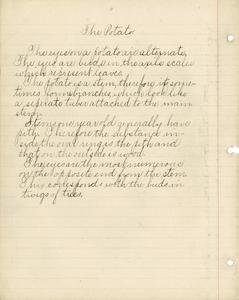 The Potato
The eyes on a potato are alternate.
The eyes are buds in the axils scales
which represent leaves.
The potato is a stem, therefore it some-
times has branches, which look like
a seprate tuber attached to the main
stem.
Stems one year old generally have
pith. Therefore the substance in-
side the oval ring is the pith and
that on the outside is wood.
The eyes are the most numerous
on the opposite end from the stem.
This corresponds with the buds in
twigs of trees.